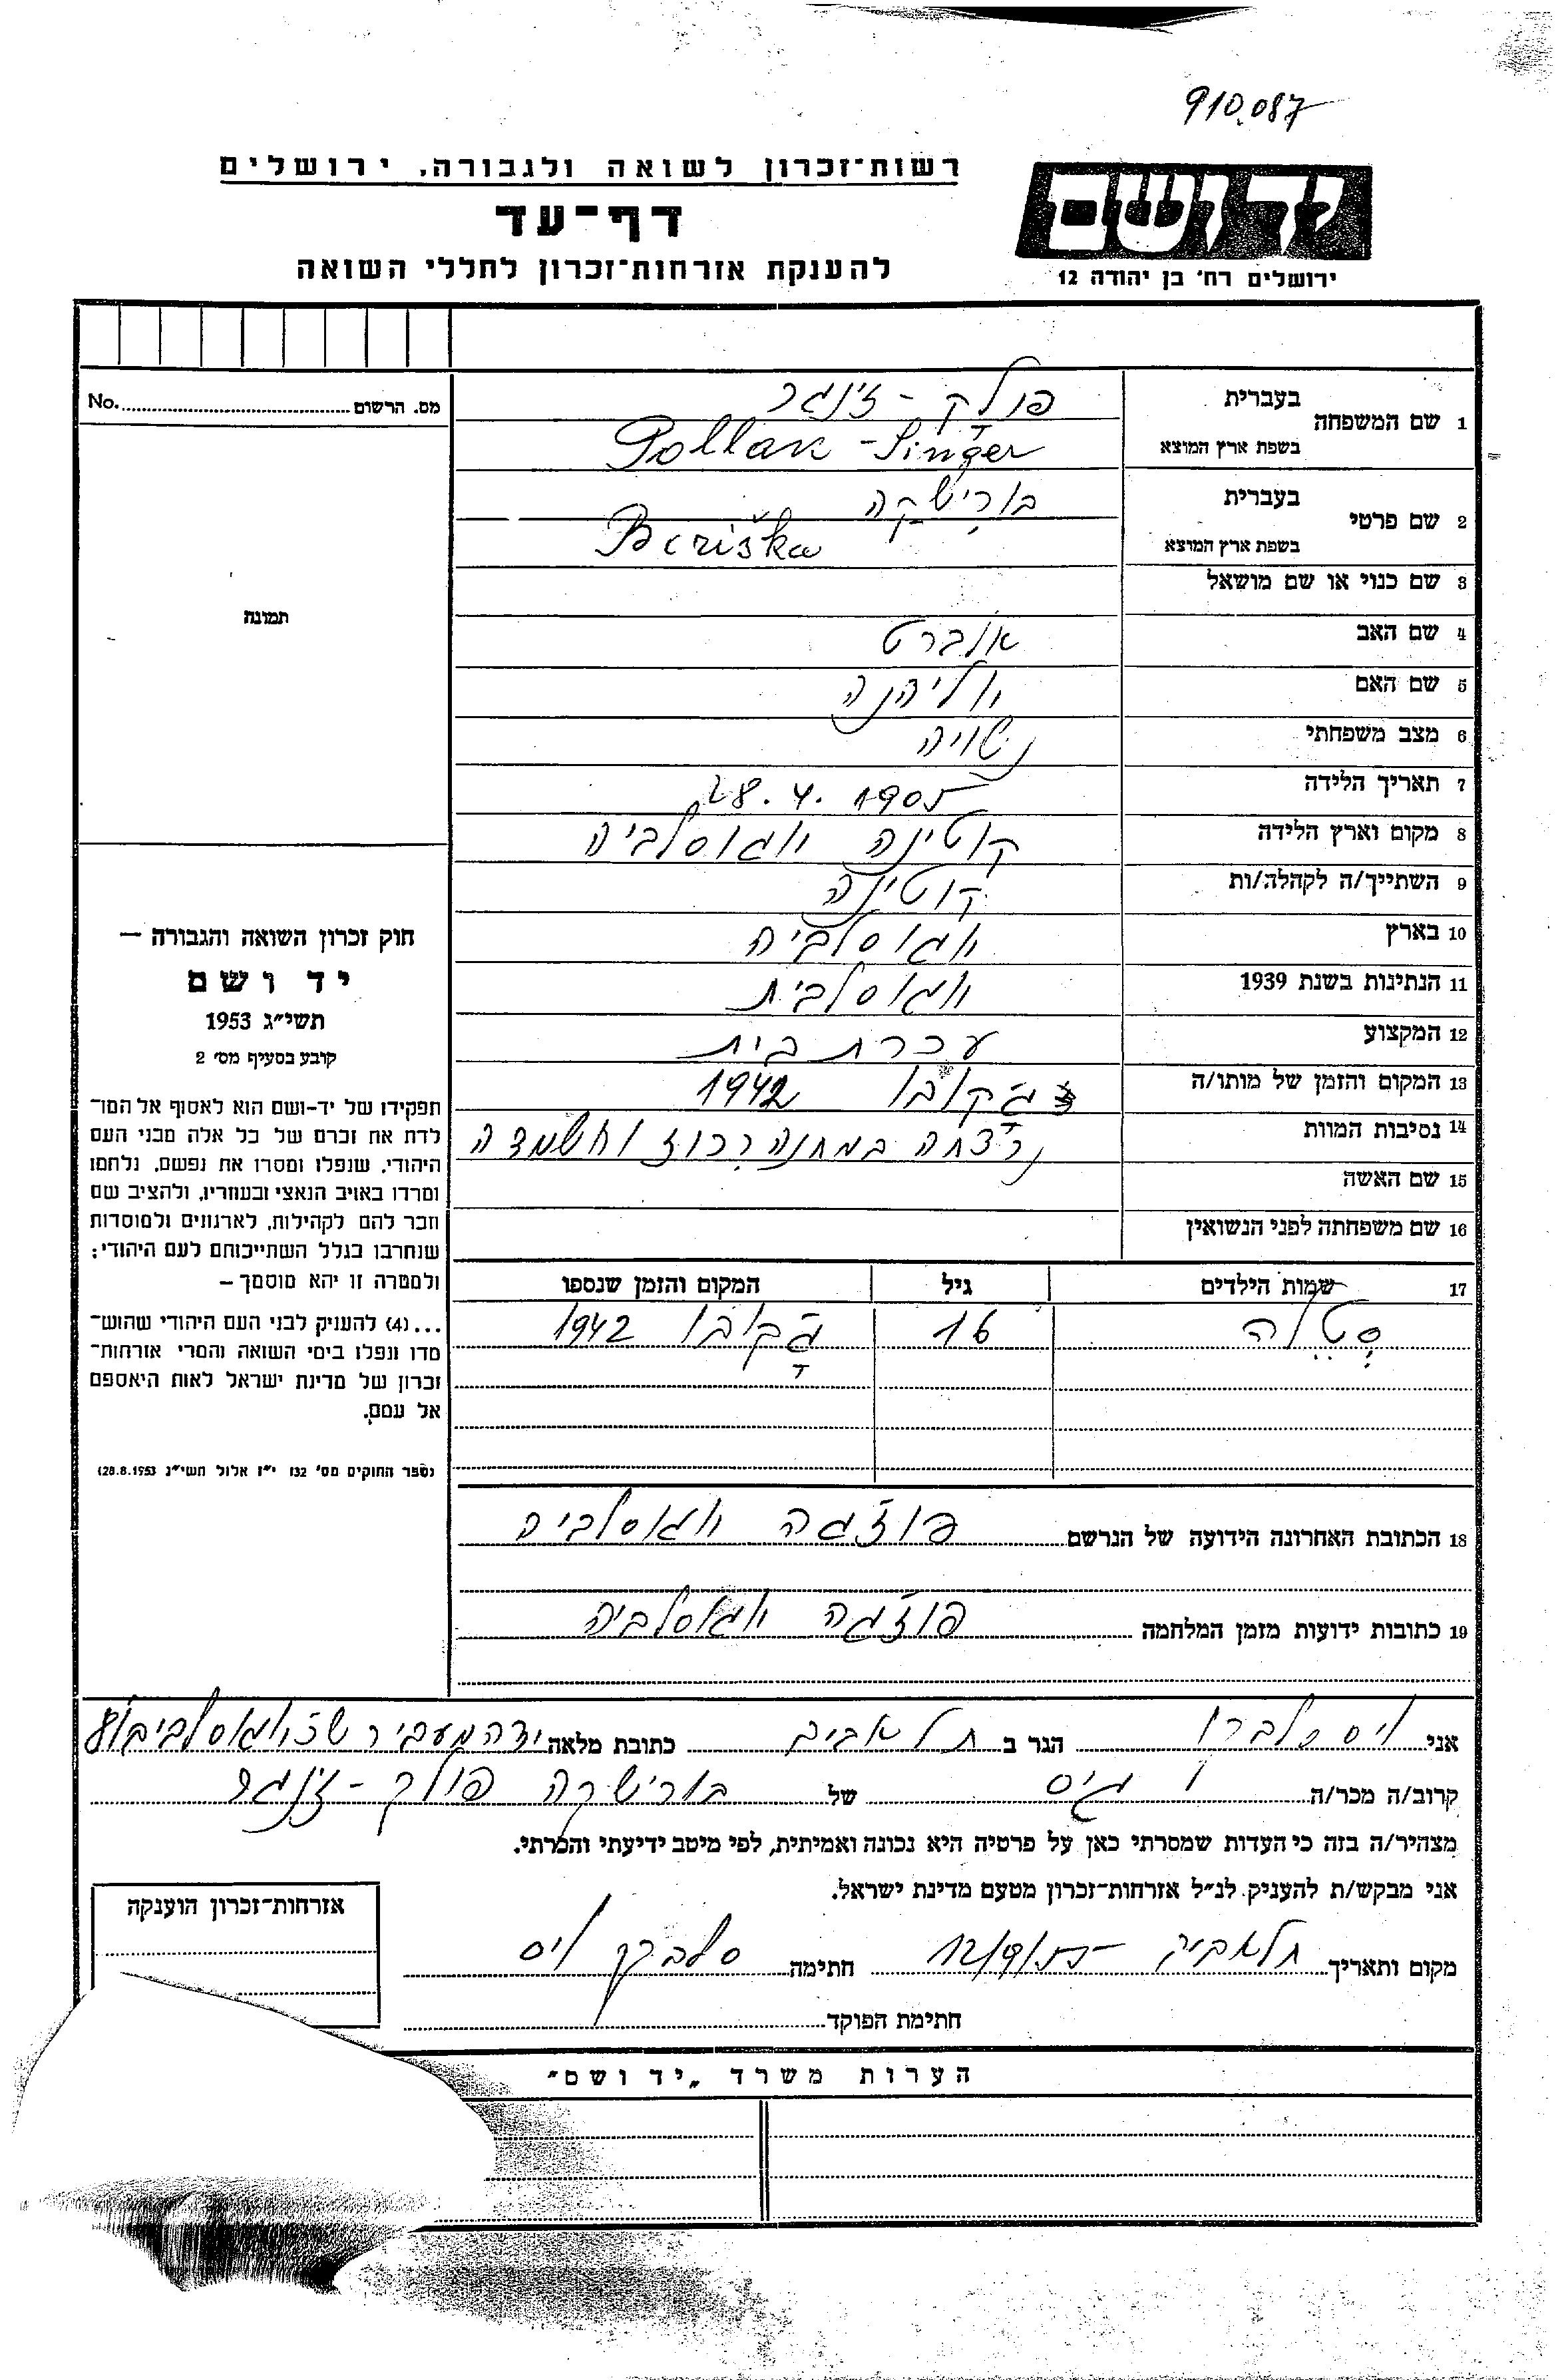 910.087
רשות־זכרון לשואה ולגבורה, ירושלים
דף־עד
להענקת אזרחות־זכרון לחללי השואה
ידושם
ירושלים רח' בן יהודה 12
מס. הרשום No.
1 שם המשפחה
בעברית פולק - זינגר
בשפת ארץ המוצא Pollak - Singer
2 שם פרטי
בעברית בורישקה
בשפת ארץ המוצא Boriška
3 שם כנוי או שם מושאל
4 שם האב אלברט
5 שם האם
6 מצב משפחתי נשויה
7 תאריך הלידה 28. 4. 1905
8 מקום וארץ הלידה קוטינה יוגוסלביה
9 השתייך/ה לקהלה/ות קוטינה
10 בארץ יוגוסלביה
11 הנתינות בשנת 1939 יוגוסלבית
12 המקצוע עכרת בית
13 המקום והזמן של מותו/ה ג'קובו 1942
14 נסיבות המוות נרצחה במחנה רכוז והשמדה
15 שם האשה
16 שם משפחתה לפני הנשואין
17 שמות הילדים גיל המקום והזמן שנספו
סטלה 16 ג'קובו 1942
18 הכתובת האחרונה הידועה של הנרשם פוז'גה יוגוסלביה
19 כתובות ידועות מזמן המלחמה פוז'גה יוגוסלביה
תמונה
חוק זכרון השואה והגבורה —
יד ושם
תשי״ג 1953
קובע בסעיף מס' 2
תפקידו של יד-ושם הוא לאסוף אל המו־
לדת את זכרם של כל אלה מבני העם
היהודי, שנפלו ומסרו את נפשם, נלחמו
ומרדו באויב הנאצי ובעוזריו, ולהציב שם
וזכר להם לקהילות, לארגונים ולמוסדות
שנחרבו בגלל השתייכותם לעם היהודי;
ולמטרה זו יהא מוסמך —
...(4) להעניק לבני העם היהודי שהוש־
מדו ונפלו בימי השואה והמרי אזרחות־
זכרון של מדינת ישראל לאות היאספם
אל עמם.
(ספר החוקים מס' 132 י״ז אלול תשי״ג 28.8.1953)
אני ויס סלברן הגר ב תל אביב כתובת מלאה
קרוב/ה מכר/ה גיס של בורישקה פולק - זינגר
מצהיר/ה בזה כי העדות שמסרתי כאן על פרטיה היא נכונה ואמיתית, לפי מיטב ידיעתי והכרתי.
אני מבקש/ת להעניק לנ״ל אזרחות־זכרון מטעם מדינת ישראל.
מקום ותאריך תל אביב 12/9/55 חתימה סלברן ויס
חתימת הפוקד
אזרחות־זכרון הוענקה
הערות משרד „יד ושם״